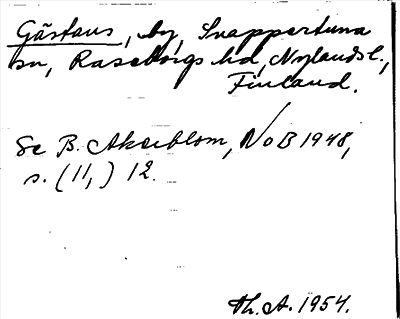 Gästans, by, Snappertuna
sn, Raseborgs hd, Nylands l.,
Finland.
Se B. Åkerblom, NoB 1948,
s. (11,) 12.
Th. A. 1954.